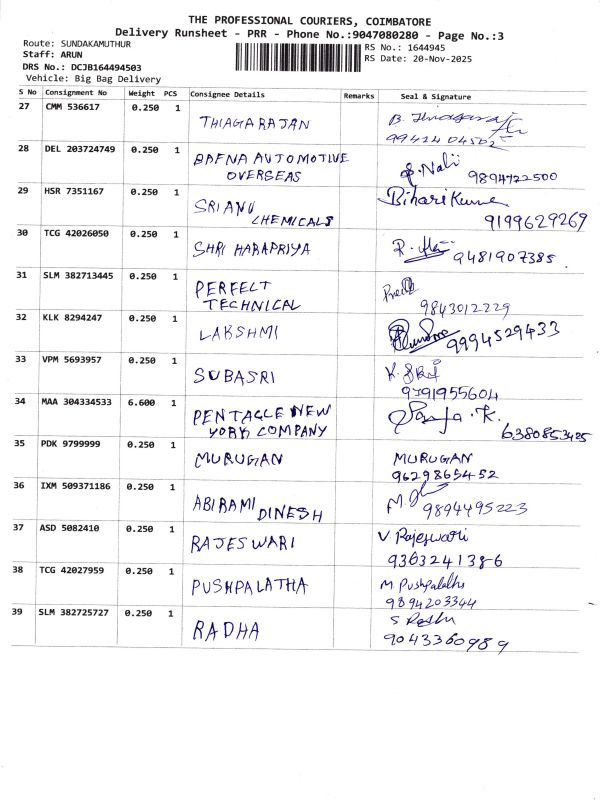 THE PROFESSIONAL COURIERS, COIMBATORE
Delivery Runsheet - PRR - Phone No.:9047080280 - Page No.:3
Route: SUNDAKAMUTHUR
RS No.: 1644945
Staff: ARUN
RS Date: 20-Nov-2025
DRS No.: DCJB164494503
Vehicle: Big Bag Delivery
S No Consignment No Weight PCS Consignee Details Remarks Seal & Signature
27 CMM 536617 0.250 1 THIAGARAJAN B.
9942404502
28 DEL 203724749 0.250 1 BAFNA AUTOMOTIVE
OVERSEAS 9894722500
29 HSR 7351167 0.250 1 SRI ANU CHEMICALS Bihari Kumar
9199629269
30 TCG 42026050 0.250 1 SHRI HARAPRIYA R. 9481907385
31 SLM 382713445 0.250 1 PERFECT
TECHNICAL 9843012229
32 KLK 8294247 0.250 1 LAKSHMI 9994529433
33 VPM 5693957 0.250 1 SUBASRI K. SRI
9791955604
34 MAA 304334533 6.600 1 PENTAGLE NEW
YORK COMPANY 6380853425
35 PDK 9799999 0.250 1 MURUGAN MURUGAN
9629865452
36 IXM 509371186 0.250 1 ABIRAMI DINESH M. 9894495223
37 ASD 5082410 0.250 1 RAJESWARI V. Rajeswari
9363241386
38 TCG 42027959 0.250 1 PUSHPALATHA M Pushpalatha
9894203344
39 SLM 382725727 0.250 1 RADHA S Radha
9043360989